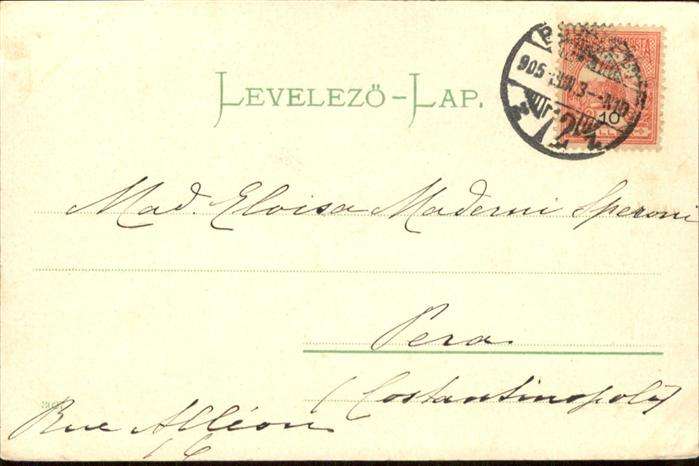 LEVELEZŐ-LAP.
905
10
Mad. Eloisa Maderni Speroni
Pera
(Costantinopoli)
Rue Alléon